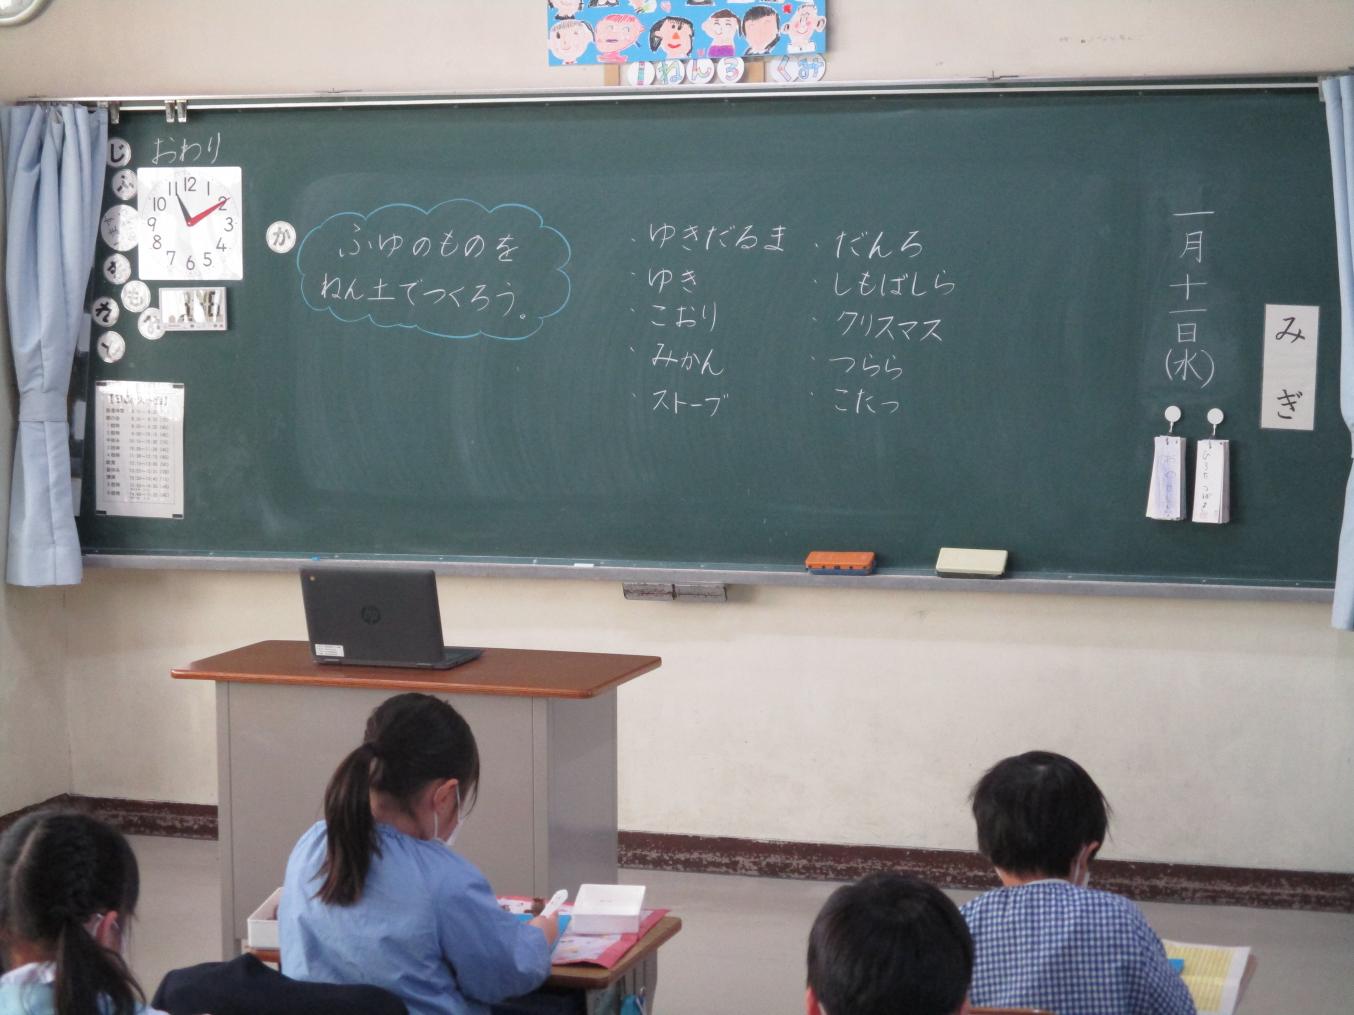 1ねん3くみ
おわり
じ
ふ
か
も
12
1
2
3
4
5
6
7
8
9
10
11
ふゆのものを
ねん土でつくろう。
・ゆきだるま
・ゆき
・こおり
・みかん
・ストーブ
・だんろ
・しもばしら
・クリスマス
・つらら
・こたつ
一月十一日(水)
みぎ
hp